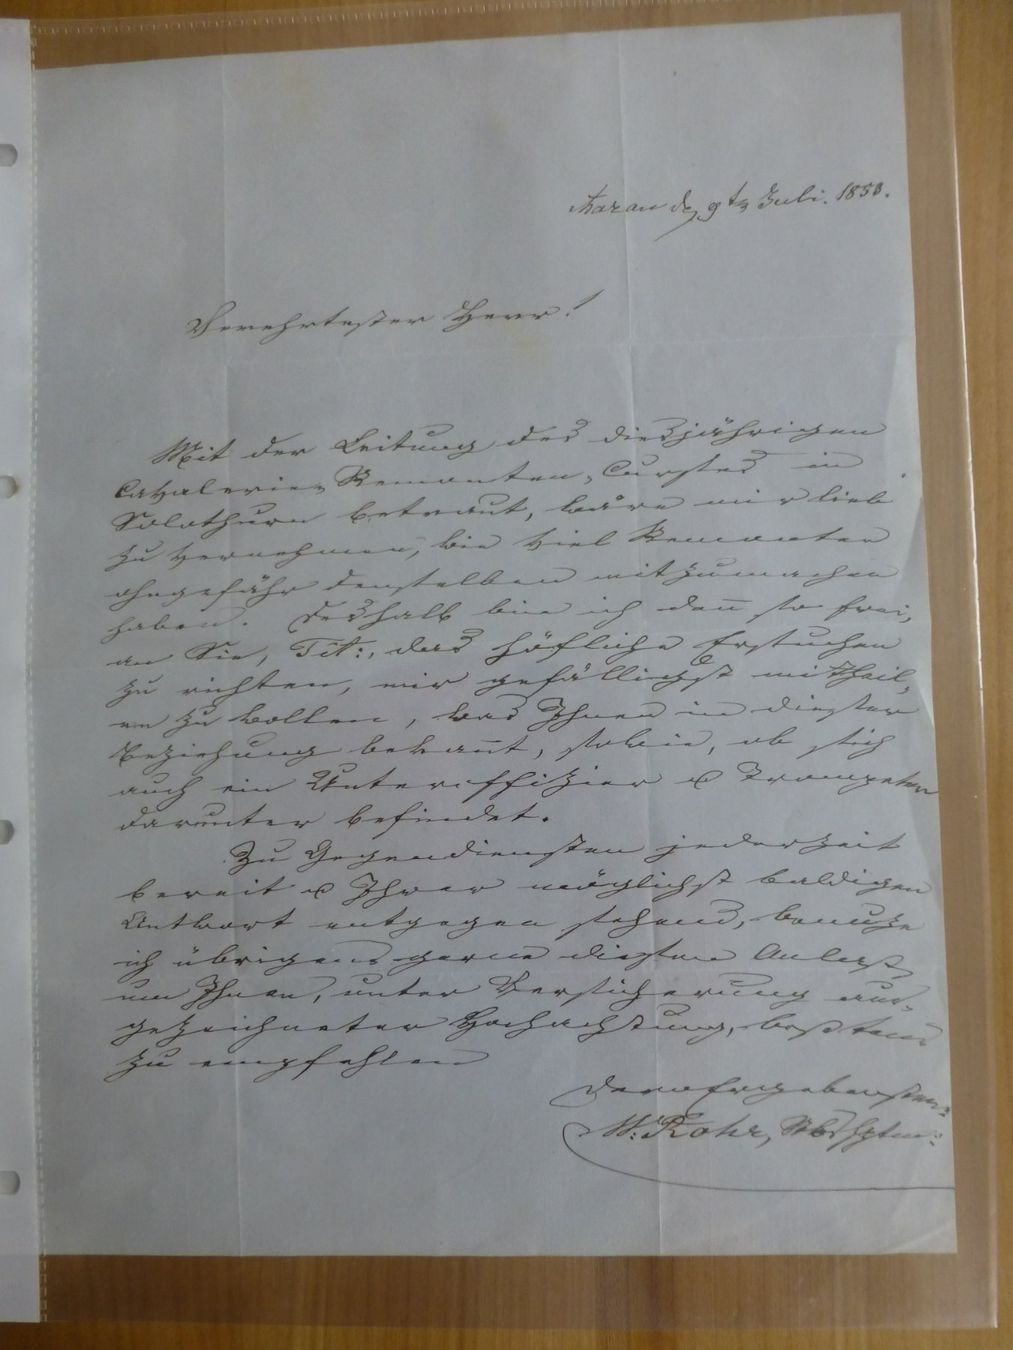 Aarau d. 9t. Juli. 1850.
Verehrtester Herr!
Mit der Leitung des diesjährigen
Cavalerie-Remonten-Curses in
Solothurn betraut, wäre mir lieb
zu vernehmen, wie viel Remonten
ohngefähr denselben mitzumachen
haben. Deshalb bin ich den̅ so frei,
an Sie, Tit:, das höfliche Ersuchen
zu richten, mir gefälligst mittheil-
en zu wollen, was Ihnen in dieser
Beziehung bekan̅t, sowie, ob sich
auch ein Unteroffizier u Trompeter
darunter befindet.
Zu Gegendiensten jederzeit
bereit u Ihrer möglichst baldigen
Antwort entgegen sehend, benuze
ich übrigens gerne diesen Anlass,
um Ihnen, unter Versicherung aus-
gezeichneter Hochachtung, bestens
zu empfehlen
Deren Ergebenster
M: Rohr, Hptm: